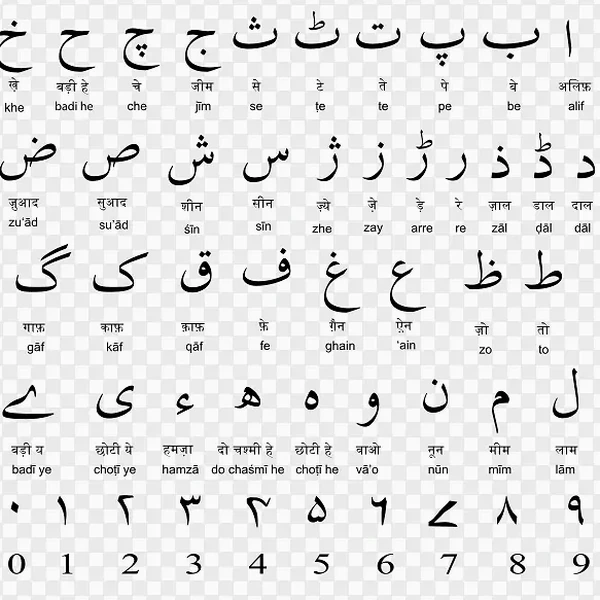 ا ب پ ت ٹ ث ج چ ح خ
ख़े बड़ी हे चे जीम से टे ते पे बे अलिफ़
khe badi he che jīm se ṭe te pe be alif
د ڈ ذ ر ڑ ز ژ س ش ص ض
ज़ुआद सुआद शीन सीन ज़्ये ज़े ड़े रे ज़ाल डाल दाल
zu'ād su'ād śīn sīn zhe zay arre re zāl ḍāl dāl
ط ظ ع غ ف ق ک گ
गाफ़ काफ़ क़ाफ़ फ़े ग़ैन ऐ़न ज़ो तो
gāf kāf qāf fe ghain 'ain zo to
ل م ن و ہ ھ ء ی ے
बड़ी य छोटी ये हमज़ा दो चश्मी हे छोटी हे वाओ नून मीम लाम
badī ye choṭī ye hamzā do chaśmī he choṭī he vā'o nūn mīm lām
۰ ۱ ۲ ۳ ۴ ۵ ۶ ۷ ۸ ۹
0 1 2 3 4 5 6 7 8 9